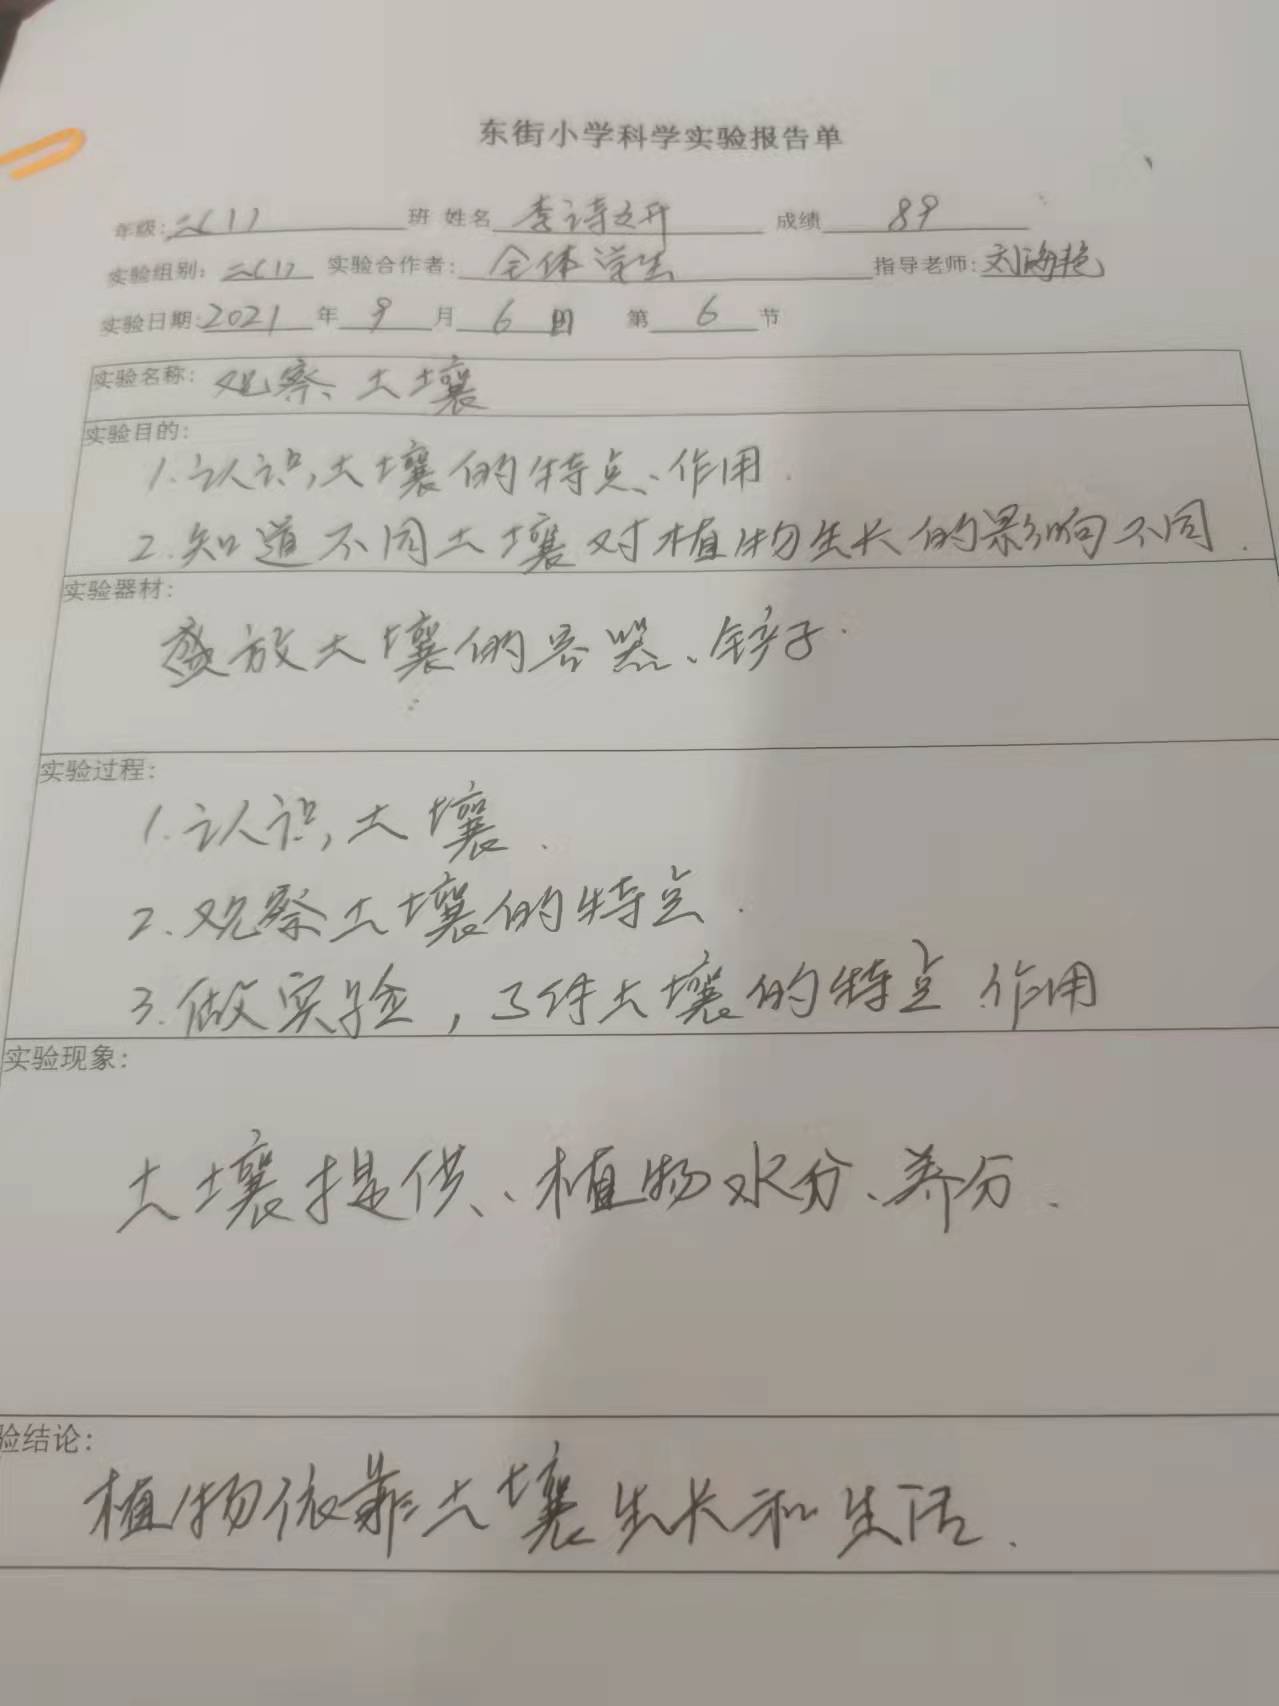 东街小学科学实验报告单
年级:二(1) 班 姓名 李诗 成绩 89
实验组别: 二(1) 实验合作者: 全体学生 指导老师: 刘海艳
实验日期: 2021 年 9 月 6 日 第 6 节
实验名称: 观察土壤
实验目的:
1.认识土壤的特点、作用.
2.知道不同土壤对植物生长的影响不同.
实验器材:
盛放土壤的容器、铲子.
实验过程:
1.认识土壤.
2.观察土壤的特点.
3.做实验,了解土壤的特点 作用
实验现象:
土壤提供、植物水分、养分.
验结论:
植物依靠土壤生长和生活.